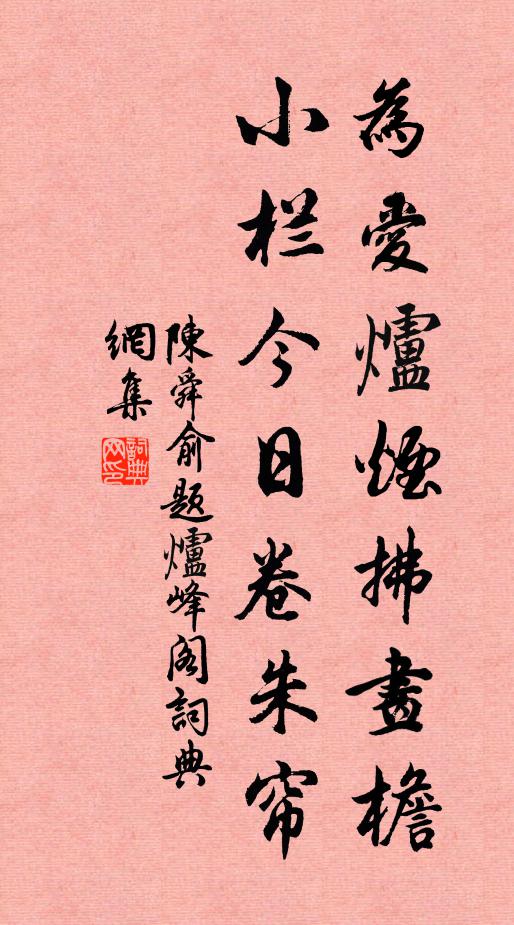 為愛爐煙拂畫檐
小栏今日卷朱帘
陳舜俞題爐峰阁詞典
網集
詞典
网印